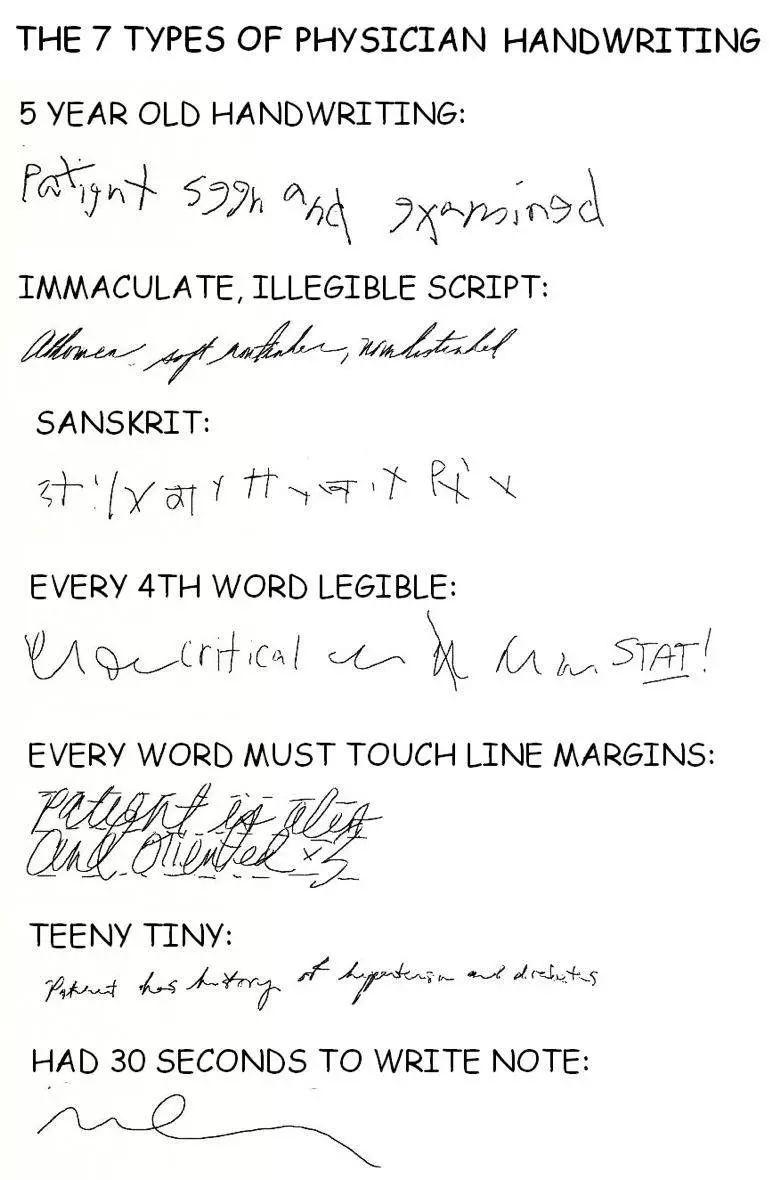 THE 7 TYPES OF PHYSICIAN HANDWRITING
5 YEAR OLD HANDWRITING:
Patient seen and examined
IMMACULATE, ILLEGIBLE SCRIPT:
Abdomen soft nontender, nondistended
SANSKRIT:
EVERY 4TH WORD LEGIBLE:
critical STAT!
EVERY WORD MUST TOUCH LINE MARGINS:
Patient is alert
and oriented x3
TEENY TINY:
Patient has history of hypertension and diabetes
HAD 30 SECONDS TO WRITE NOTE: